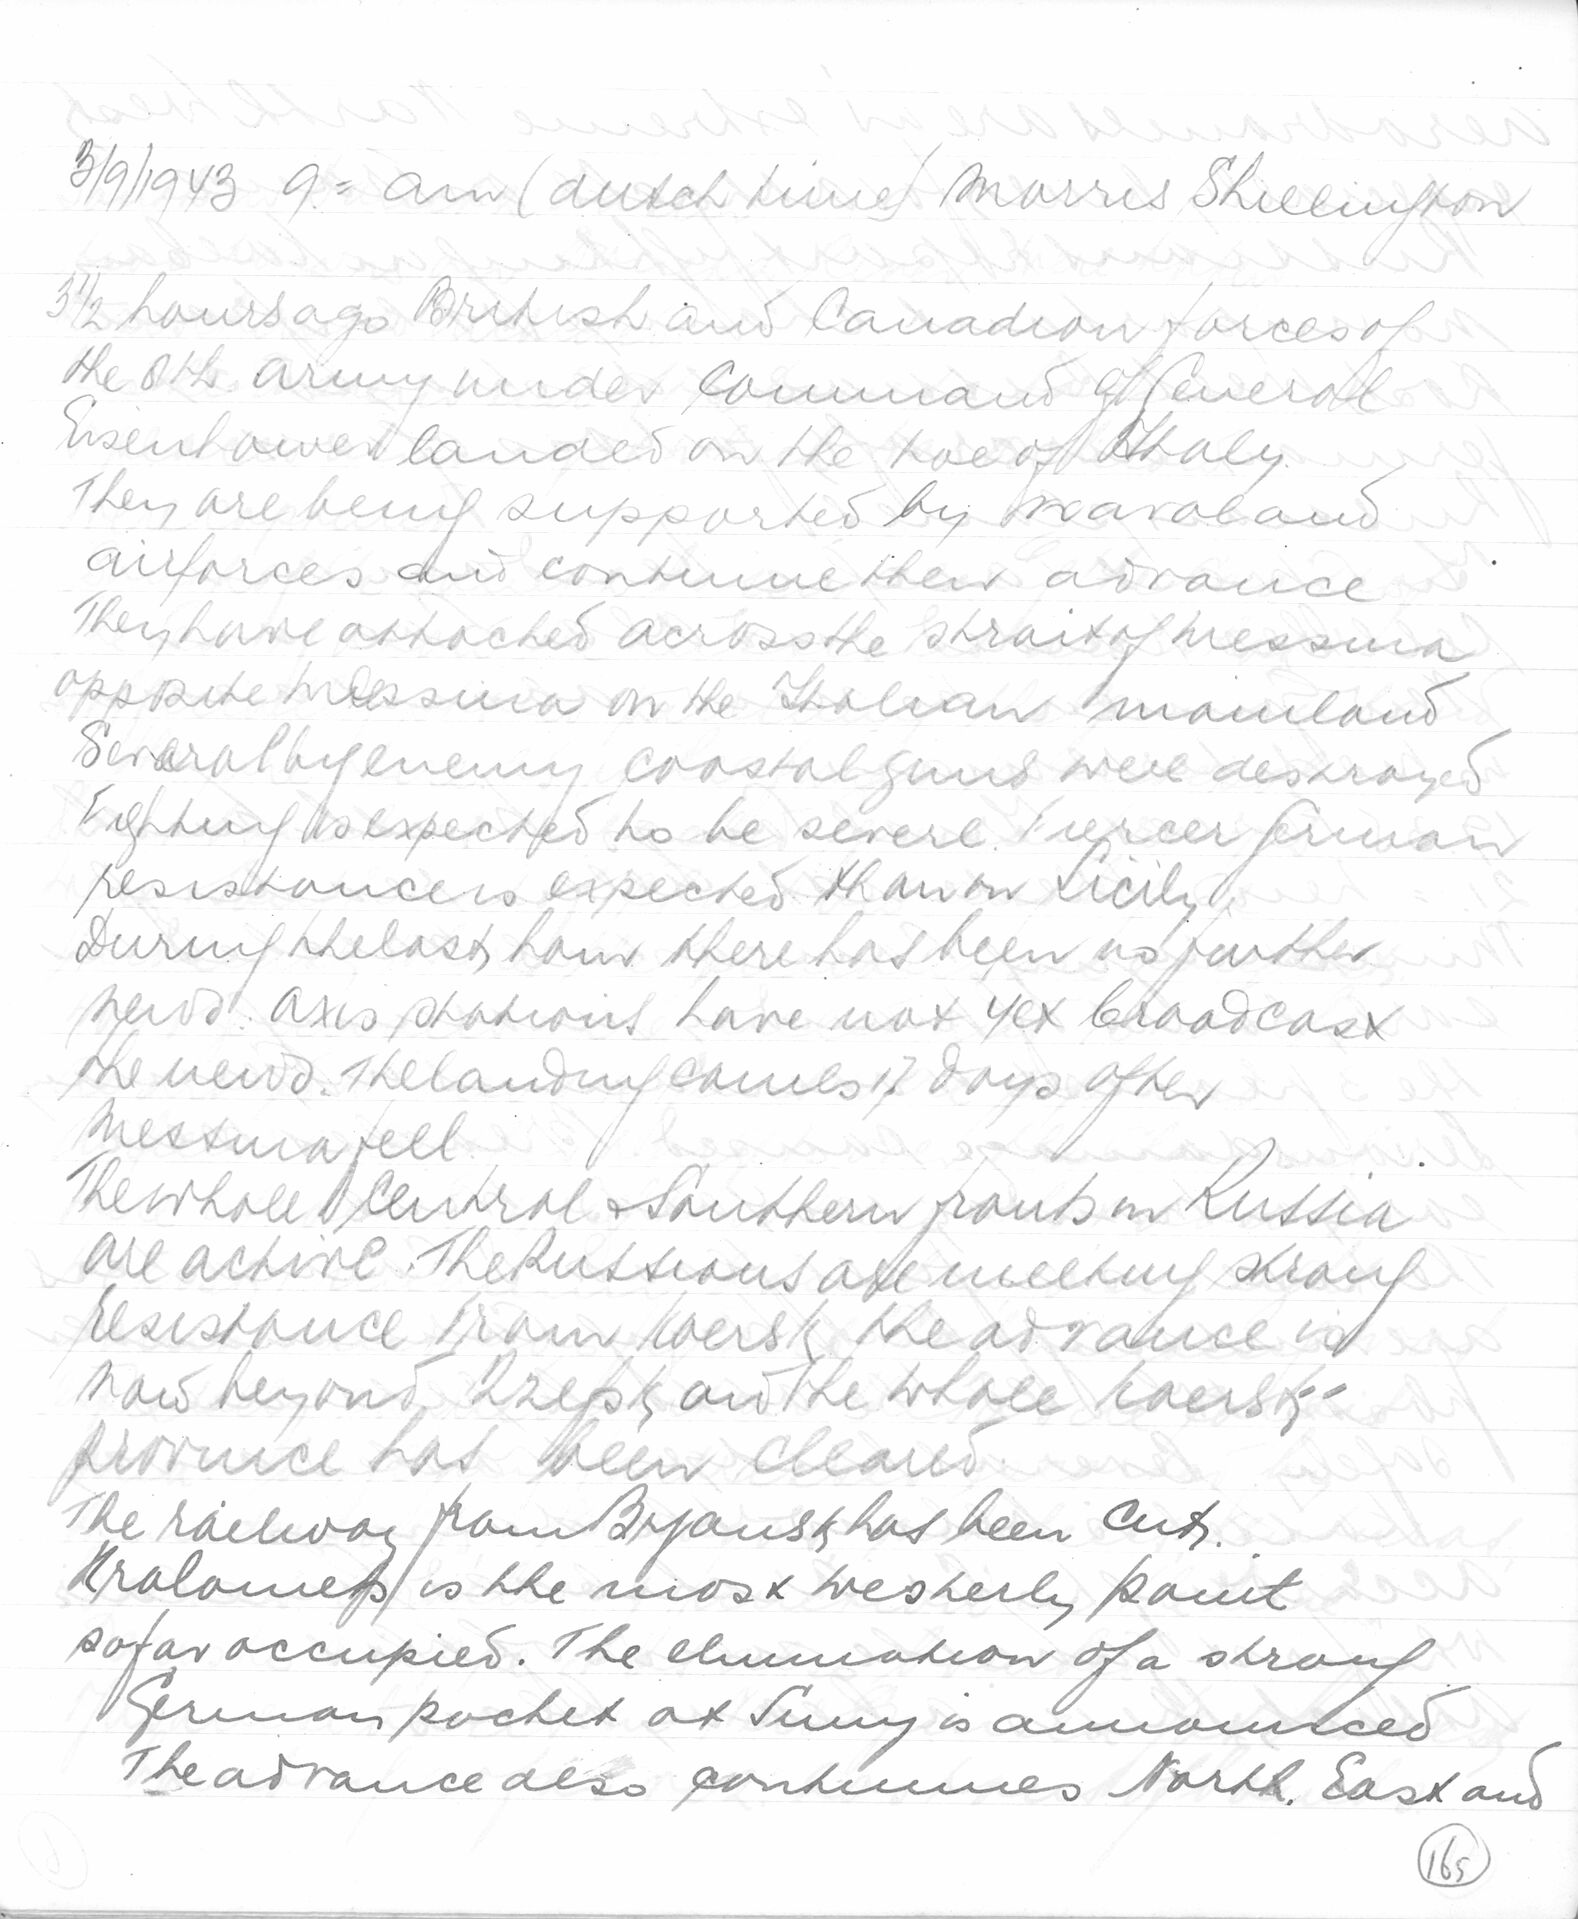 3/9/1943 9= am (dutch time) Morris Shillington
3 1/2 hours ago British and Canadian forces of
the 8th army under Command of General
Eisenhower landed on the toe of Ithaly.
They are being supported by naval and
airforces and continue their advance
They have attached across the strait of Messina
opposite Messina on the Italian mainland
Several big enemy coastal guns were destroyed
Fighting is expected to be severe. Fiercer German
resistance is expected than on Sicily.
During the last hour there has been no further
news. Axis stations have not yet broadcast
the news. The landing comes 17 days after
Messina fell.
The whole Central & Southern fronts in Russia
are active. The Russians are meeting strong
resistance from Koersk the advance is
now beyond and the whole Koersk--
province has been cleared.
The railway from Bryansk has been cut.
is the most westerly point
so far occupied. The elimination of a strong
German pocket at Sumy is announced
The advance also continues North. East and
165